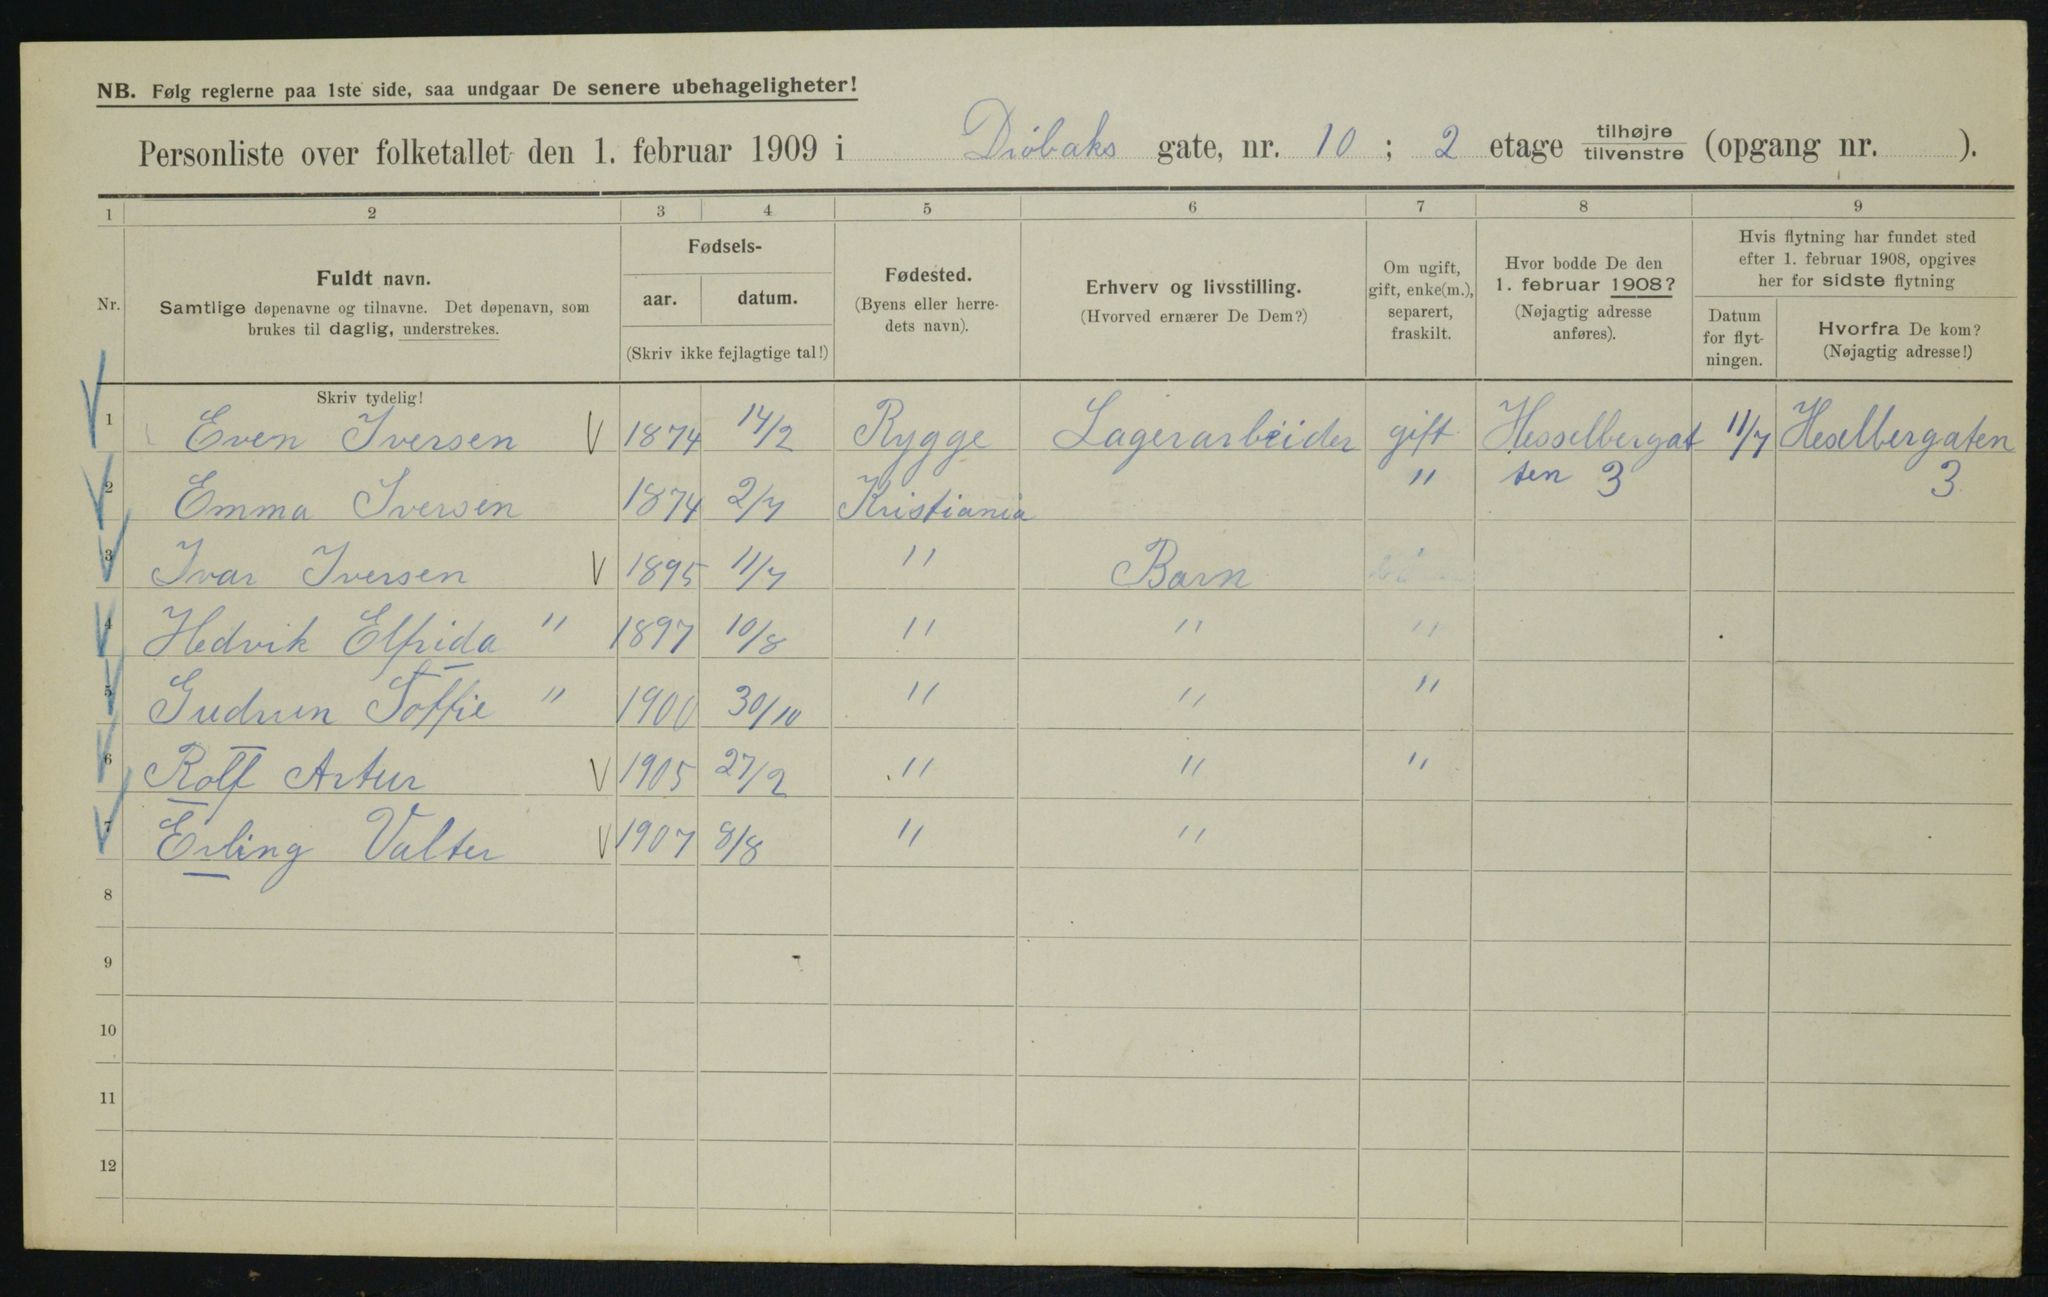 NB. Følg reglerne paa 1ste side, saa undgaar De senere ubehageligheter!
Personliste over folketallet den 1. februar 1909 i Dröbaks gate, nr. 10 ; 2 etage tilhøjre/tilvenstre (opgang nr. ).
1 2 3 4 5 6 7 8 9
Nr.
Fuldt navn.
Samtlige døpenavne og tilnavne. Det døpenavn, som
brukes til daglig, understrekes.
Fødsels-
aar. datum.
(Skriv ikke fejlagtige tal!)
Fødested.
(Byens eller herre-
dets navn).
Erhverv og livsstilling.
(Hvorved ernærer De Dem?)
Om ugift,
gift, enke(m.),
separert,
fraskilt.
Hvor bodde De den
1. februar 1908?
(Nøjagtig adresse
anføres).
Hvis flytning har fundet sted
efter 1. februar 1908, opgives
her for sidste flytning
Datum
for flyt-
ningen.
Hvorfra De kom?
(Nøjagtig adresse!)
Skriv tydelig!
1 Even Iversen V 1874 14/2 Rygge Lagerarbeider gift Hesselbergat 11/7 Heselbergaten
2 Emma Iversen 1874 2/7 Kristiania " ten 3 3
3 Ivar Iversen V 1895 11/7 " Barn
4 Hedvik Elfrida " 1897 10/8 " " "
5 Gudrun Soffie " 1900 30/10 " " "
6 Rolf Artur V 1905 27/2 " " "
7 Erling Valter V 1907 8/8 " "
8
9
10
11
12